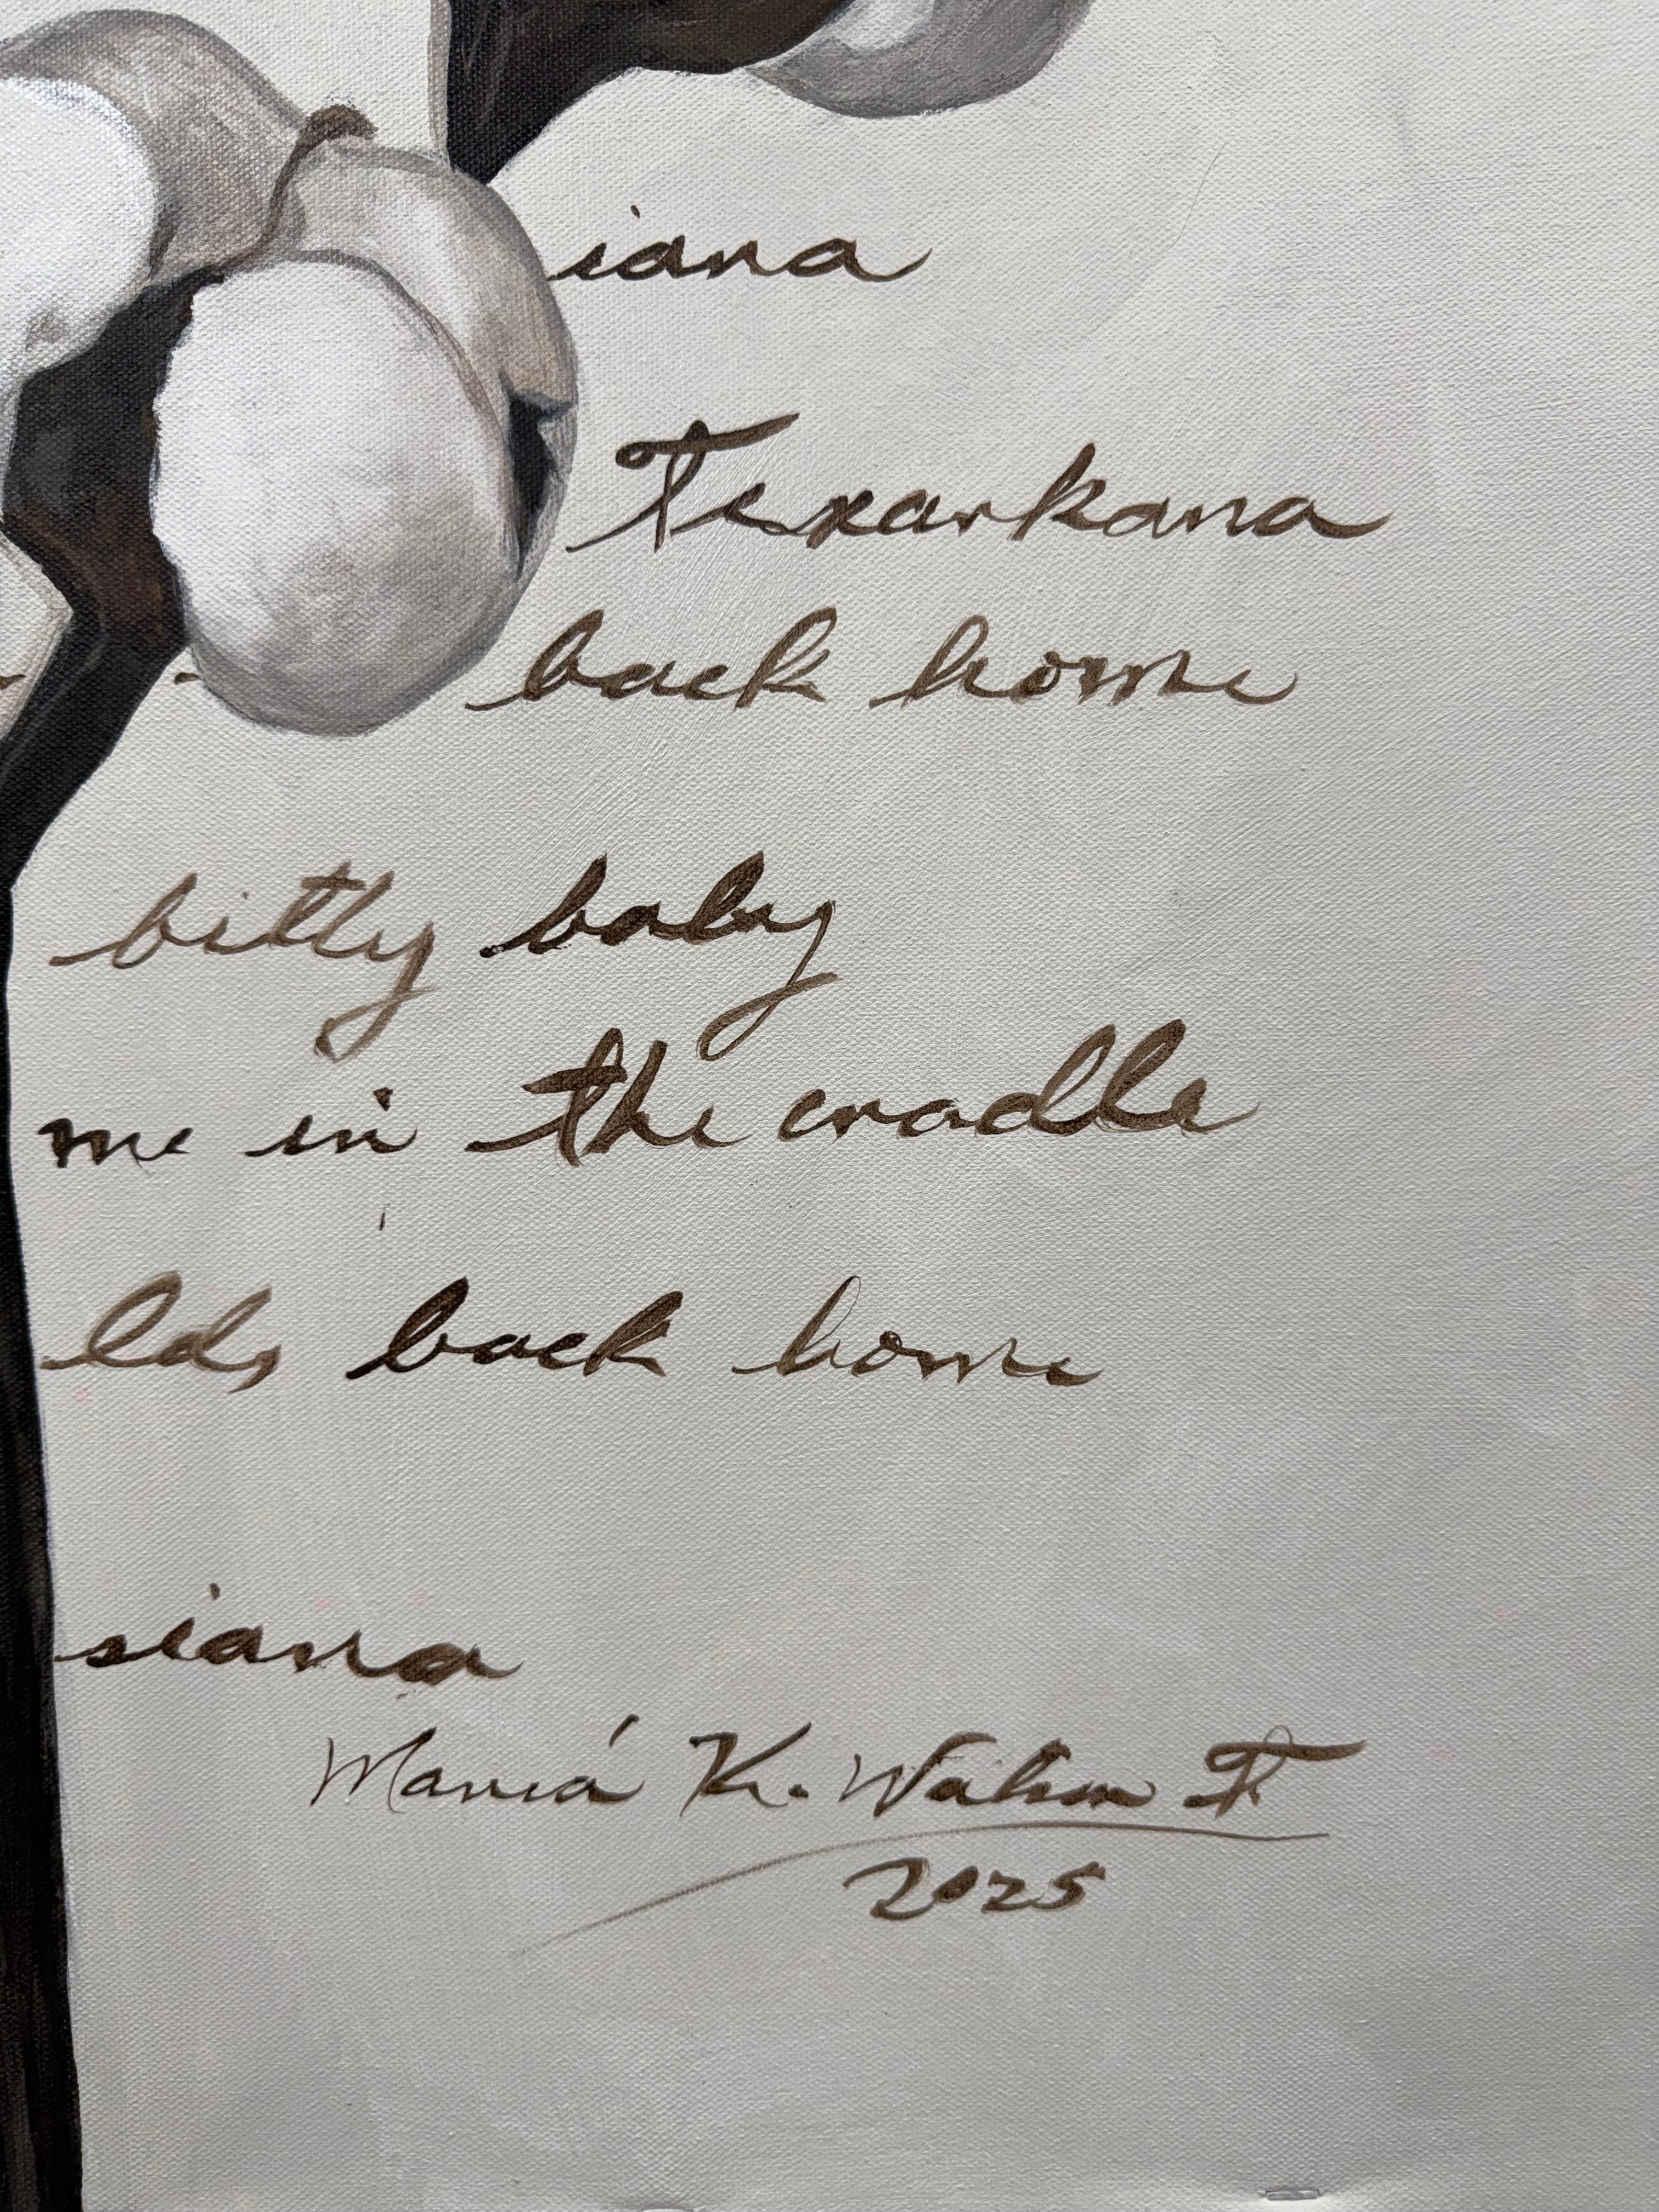 iana
Texarkana
back home
bitty baby
me in the cradle
lds, back home
siana
Mariá K.
2025